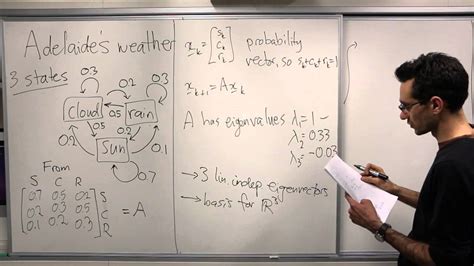 Adelaide's weather
3 states
0.3
0.3
0.2
Cloud
rain
0.5
0.5
0.2
0.2
Sun
0.1
0.7
From
S C R
[0.7 0.5 0.2] S
[0.2 0.3 0.5] C = A
[0.1 0.2 0.3] R
x_k = [s_k c_k r_k] probability
vector, so s_k+c_k+r_k=1
x_k+1 = A x_k
A has eigenvalues λ₁ = 1 -
λ₂ = 0.33
λ₃ = -0.03
→ 3 lin. indep eigenvectors
→ basis for ℝ³